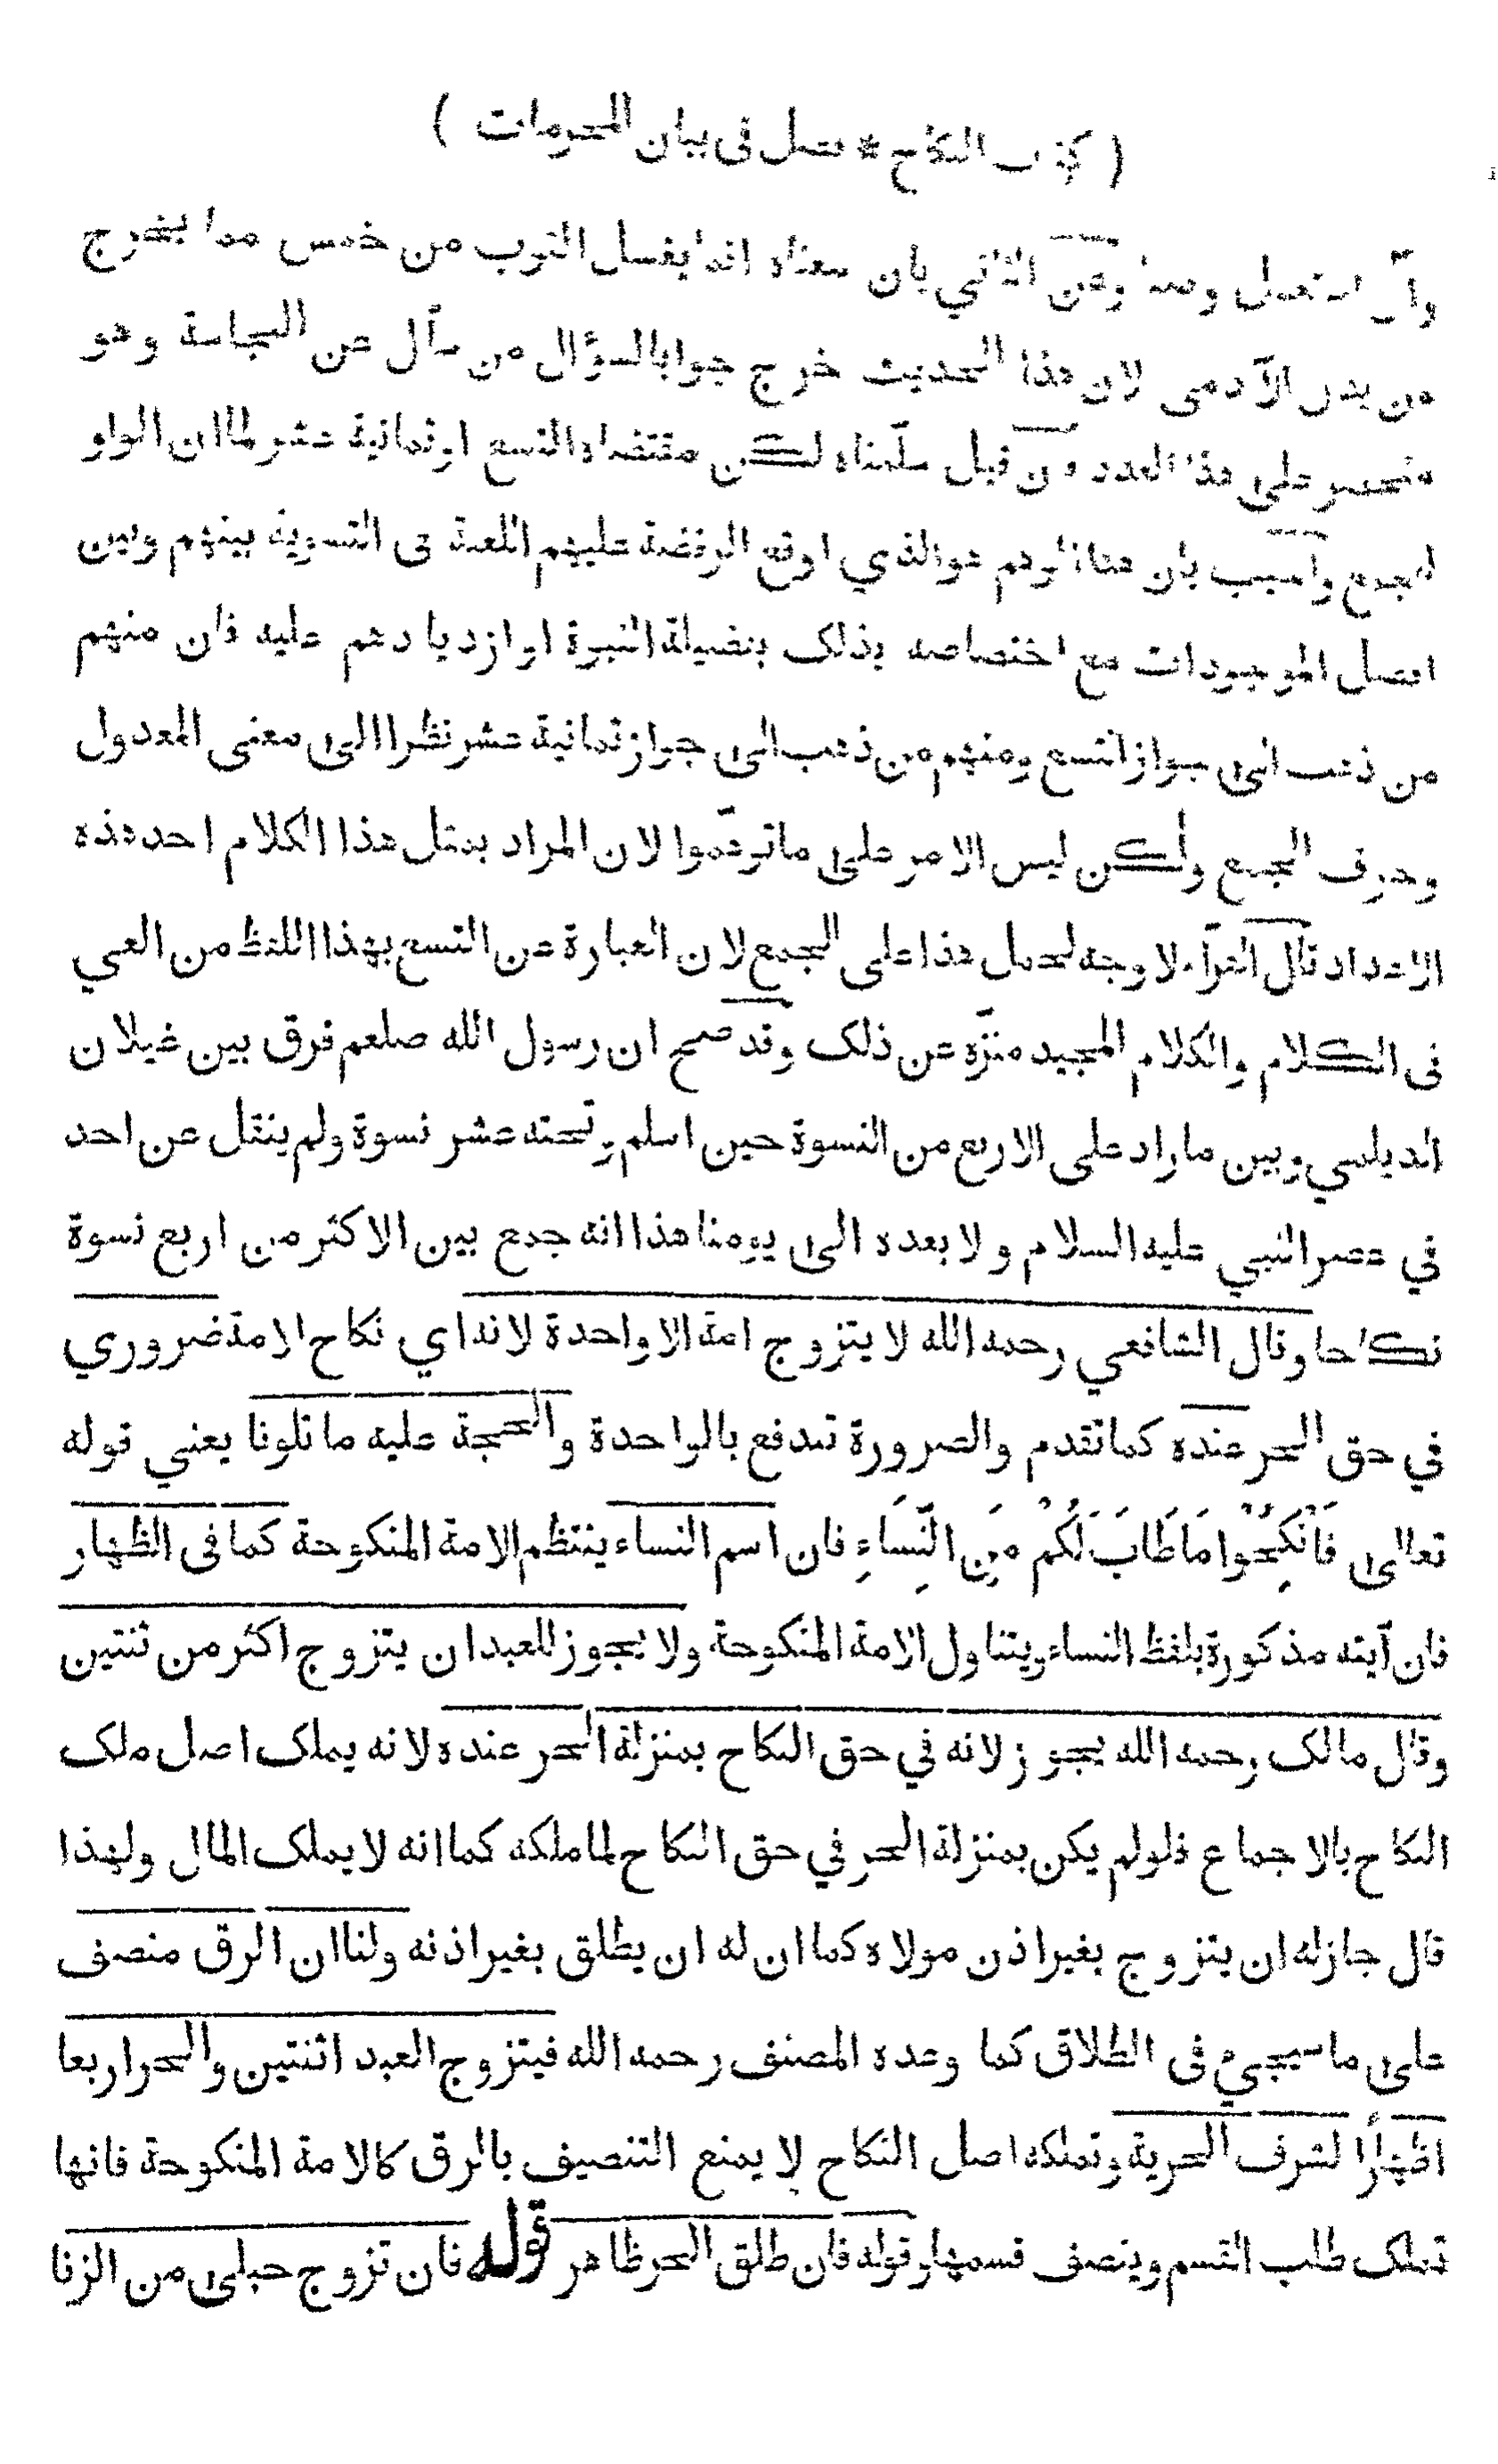 ( كتاب النكاح * فصل في بيان المحرمات )
وآ استعمل وصفا وعن الثاني بان معناه انما يغسل الثوب من خمس مما يخرج
من بدن الآدمي لان هذا الحديث خرج جوابا لسؤال من سأل عن النجاسة وهو
منحصر على هذا العدد ون قيل سلّمناه لكن مقتضاه التسع او ثمانية عشر لما ان الواو
للجمع وأجيب بان هذا الوهم هو الذي اوقع الرفضة عليهم اللعنة في التسوية بينهم وبين
افضل الموجودات مع اختصاصه بذلك بفضيلة النبوة او ازديادهم عليه فان منهم
من ذهب الى جواز التسع ومنهم من ذهب الى جواز ثمانية عشر نظرا الى معنى المعدول
وحرف الجمع ولكن ليس الامر على ما توهّموا لان المراد بمثل هذا الكلام احد هذه
الاعداد قال الفرّاء لا وجه لحمل هذا على الجمع لان العبارة عن التسع بهذا اللفظ من العي
في الكلام والكلام المجيد منزّه عن ذلك وقد صح ان رسول الله صلعم فرق بين غيلان
الديلمي وبين ما زاد على الاربع من النسوة حين اسلم وتحته عشر نسوة ولم ينقل عن احد
في عصر النبي عليه السلام ولا بعده الى يومنا هذا انه جمع بين الاكثر من اربع نسوة
نكاحا وقال الشافعي رحمه الله لا يتزوج امة الا واحدة لانه اي نكاح الامة ضروري
في حق الحر عنده كما تقدم والضرورة تندفع بالواحدة والحجة عليه ما تلونا يعني قوله
تعالى فَانْكِحُوا مَا طَابَ لَكُمْ مِنَ النِّسَاءِ فان اسم النساء ينتظم الامة المنكوحة كما في الظهار
فان آيته مذكورة بلفظ النساء ويتناول الامة المنكوحة ولا يجوز للعبد ان يتزوج اكثر من ثنتين
وقال مالك رحمه الله يجوز لانه في حق النكاح بمنزلة الحر عنده لانه يملك اصل ملك
النكاح بالاجماع فلولم يكن بمنزلة الحر في حق النكاح لما ملكه كما انه لا يملك المال ولهذا
قال جاز له ان يتزوج بغير اذن مولاه كما ان له ان يطلق بغير اذنه ولنا ان الرق منصف
على ما سيجيء في الطلاق كما وعده المصنف رحمه الله فيتزوج العبد اثنتين والحر اربعا
اظهارًا لشرف الحرية وتملكه اصل النكاح لا يمنع التنصيف بالرق كالامة المنكوحة فانها
تملك طلب القسم وينصف قسمها وقوله فان طلق الحر ظاهر قوله فان تزوج حبلى من الزنا